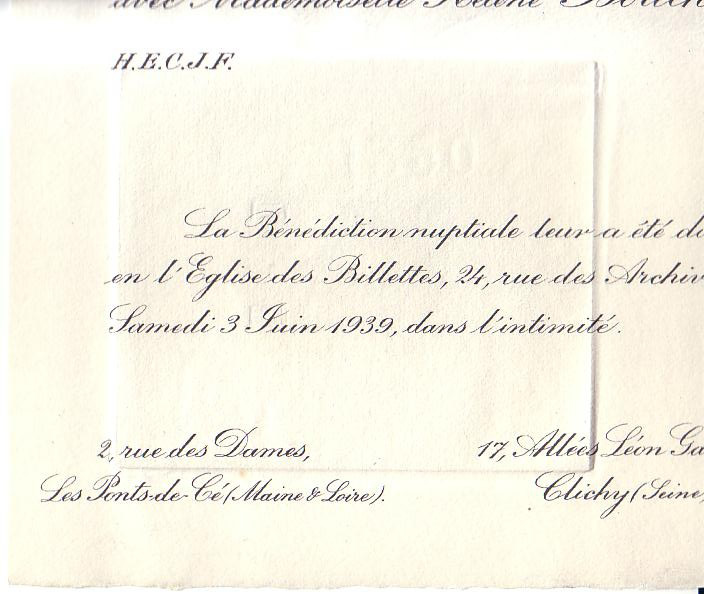 avec Mademoiselle Hélène
H.E.C.J.F.
La Bénédiction nuptiale leur a été do
en l'Eglise des Billettes, 24, rue des Archiv
Samedi 3 Juin 1939, dans l'intimité.
2, rue des Dames,
Les Ponts-de-Cé (Maine & Loire).
17, Allées Léon Ga
Clichy (Seine)